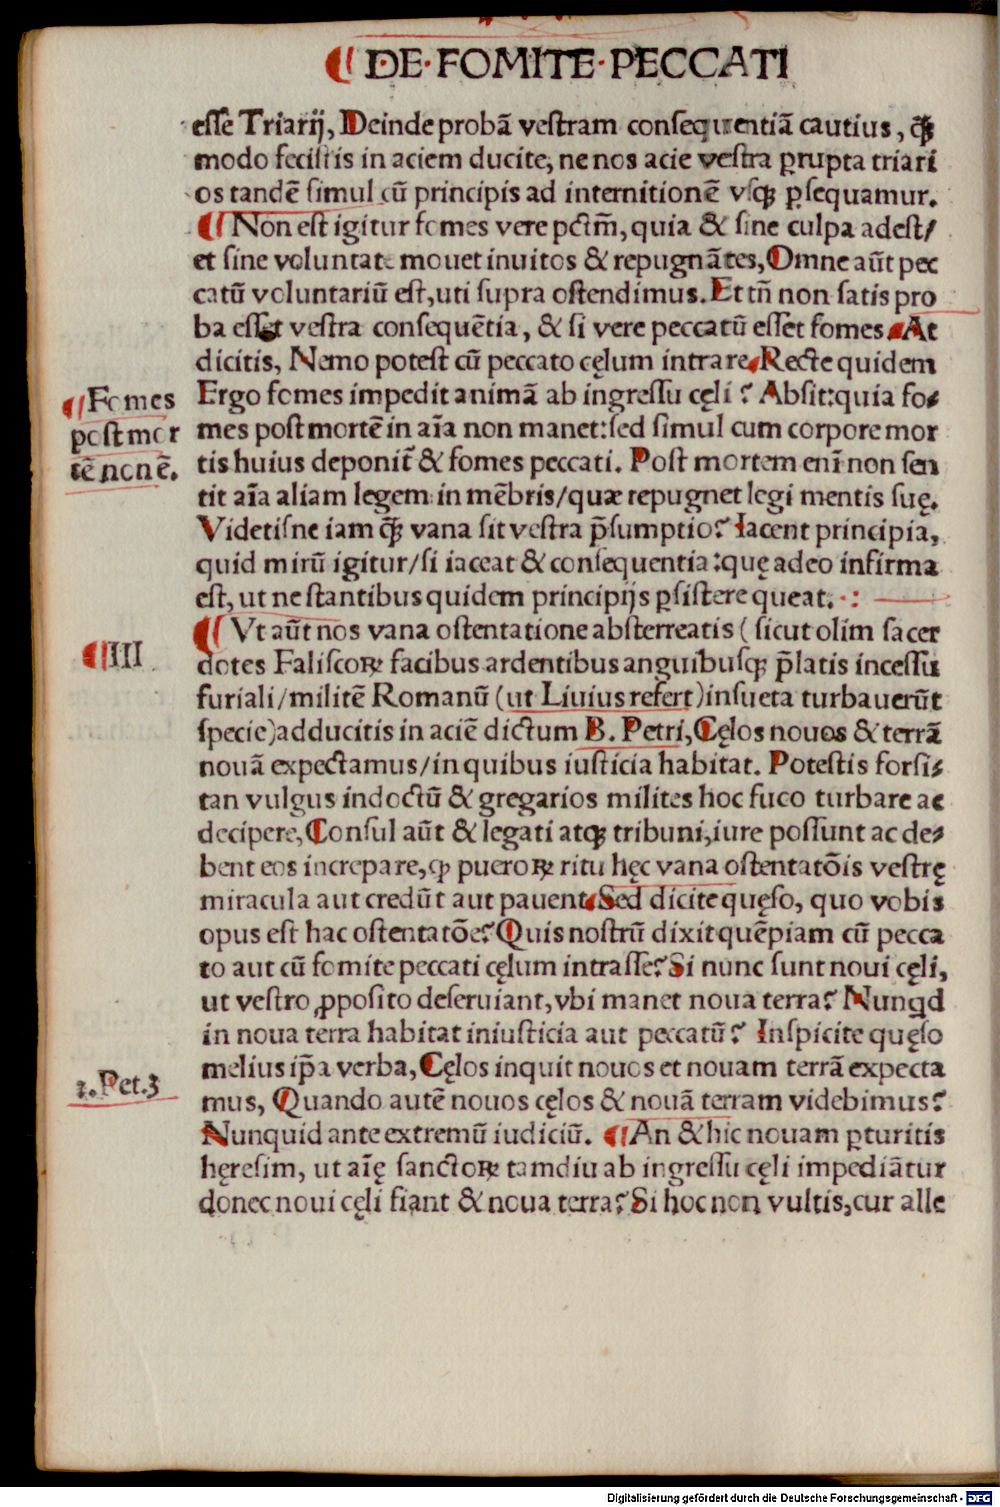 ¶ DE·FOMITE·PECCATI
esse Triarij, Deinde probã vestram consequentiã cautius, q̃
modo fecistis in aciem ducite, ne nos acie vestra p̱rupta triari
os tandẽ simul cũ principis ad internitionẽ vsqꝫ p̱sequamur.
¶ Non est igitur fomes vere pctm̃, quia & sine culpa adest/
et sine voluntate mouet inuitos & repugnãtes, Omne aũt pec
catũ voluntariũ est, uti supra ostendimus. Et tñ non satis pro
ba esset vestra consequẽtia, & si vere peccatũ esset fomes ¶ At
dicitis, Nemo potest cũ peccato cęlum intrare ¶ Recte quidem
Ergo fomes impedit animã ab ingressu cęli? Absit: quia fo⸗
mes post mortẽ in aĩa non manet: sed simul cum corpore mor
tis huius deponit̃ & fomes peccati. Post mortem enĩ non sen
tit aĩa aliam legem in mẽbris/ quæ repugnet legi mentis suę.
Videtisne iam q̃ꝫ vana sit vestra p̃sumptio? Iacent principia,
quid mirũ igitur/ si iaceat & consequentia: quę adeo infirma
est, ut ne stantibus quidem principijs p̱sistere queat. · :
¶ Vt aũt nos vana ostentatione absterreatis ( sicut olim sacer
dotes Faliscoꝝ facibus ardentibus anguibusqꝫ p̃latis incessu
furiali/ militẽ Romanũ (ut Liuius refert) insueta turbauerũt
specie) adducitis in aciẽ dictum B. Petri, Cęlos nouos & terrã
nouã expectamus/ in quibus iusticia habitat. Potestis forsi⸗
tan vulgus indoctũ & gregarios milites hoc fuco turbare ac
decipere, Consul aũt & legati atqꝫ tribuni, iure possunt ac de⸗
bent eos increpare, ꝙ pueroꝝ ritu hęc vana ostentatõis vestrę
miracula aut credũt aut pauent ¶ Sed dicite quęso, quo vobis
opus est hac ostentatõe? Quis nostrũ dixit quẽpiam cũ pecca
to aut cũ fomite peccati cęlum intrasse? Si nunc sunt noui cęli,
ut vestro ꝓposito deseruiant, vbi manet noua terra? Nunqd
in noua terra habitat iniusticia aut peccatũ? Inspicite quęso
melius ip̃a verba, Cęlos inquit nouos et nouam terrã expecta
mus, Quando autẽ nouos cęlos & nouã terram videbimus?
Nunquid ante extremũ iudiciũ. ¶ An & hic nouam p̱turitis
hęresim, ut aĩę sanctoꝝ tamdiu ab ingressu cęli impediãtur
donec noui cęli fiant & noua terra? Si hoc non vultis, cur alle
¶ Fomes
post mor
tẽ nonẽ.
¶ III
2. Pet. 3
Digitalisierung gefördert durch die Deutsche Forschungsgemeinschaft - DFG